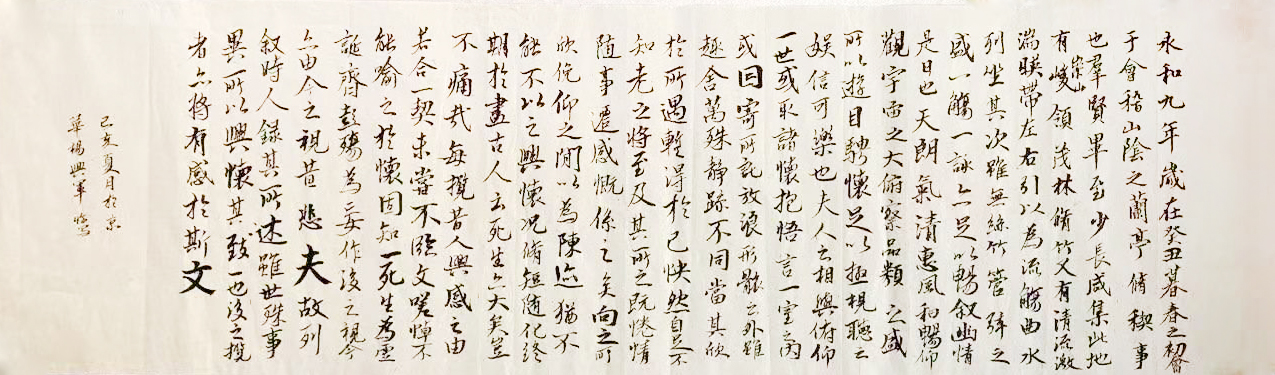 永和九年歲在癸丑暮春之初會
于會稽山陰之蘭亭脩稧事
也羣賢畢至少長咸集此地
有崇山峻領茂林脩竹又有清流激
湍暎帶左右引以為流觴曲水
列坐其次雖無絲竹管弦之
盛一觴一詠亦足以暢叙幽情
是日也天朗氣清惠風和暢仰
觀宇宙之大俯察品類之盛
所以遊目騁懷足以極視聽之
娛信可樂也夫人之相與俯仰
一世或取諸懷抱悟言一室之內
或因寄所託放浪形骸之外雖
趣舍萬殊靜躁不同當其欣
於所遇暫得於己怏然自足不
知老之將至及其所之既惓情
隨事遷感慨係之矣向之所
欣俛仰之閒以為陳迹猶不
能不以之興懷況脩短隨化終
期於盡古人云死生亦大矣豈
不痛哉每攬昔人興感之由
若合一契未嘗不臨文嗟悼不
能喻之於懷固知一死生為虛
誕齊彭殤為妄作後之視今
亦由今之視昔悲夫故列
叙時人錄其所述雖世殊事
異所以興懷其致一也後之攬
者亦將有感於斯文
己亥夏月於京
華楊興軍